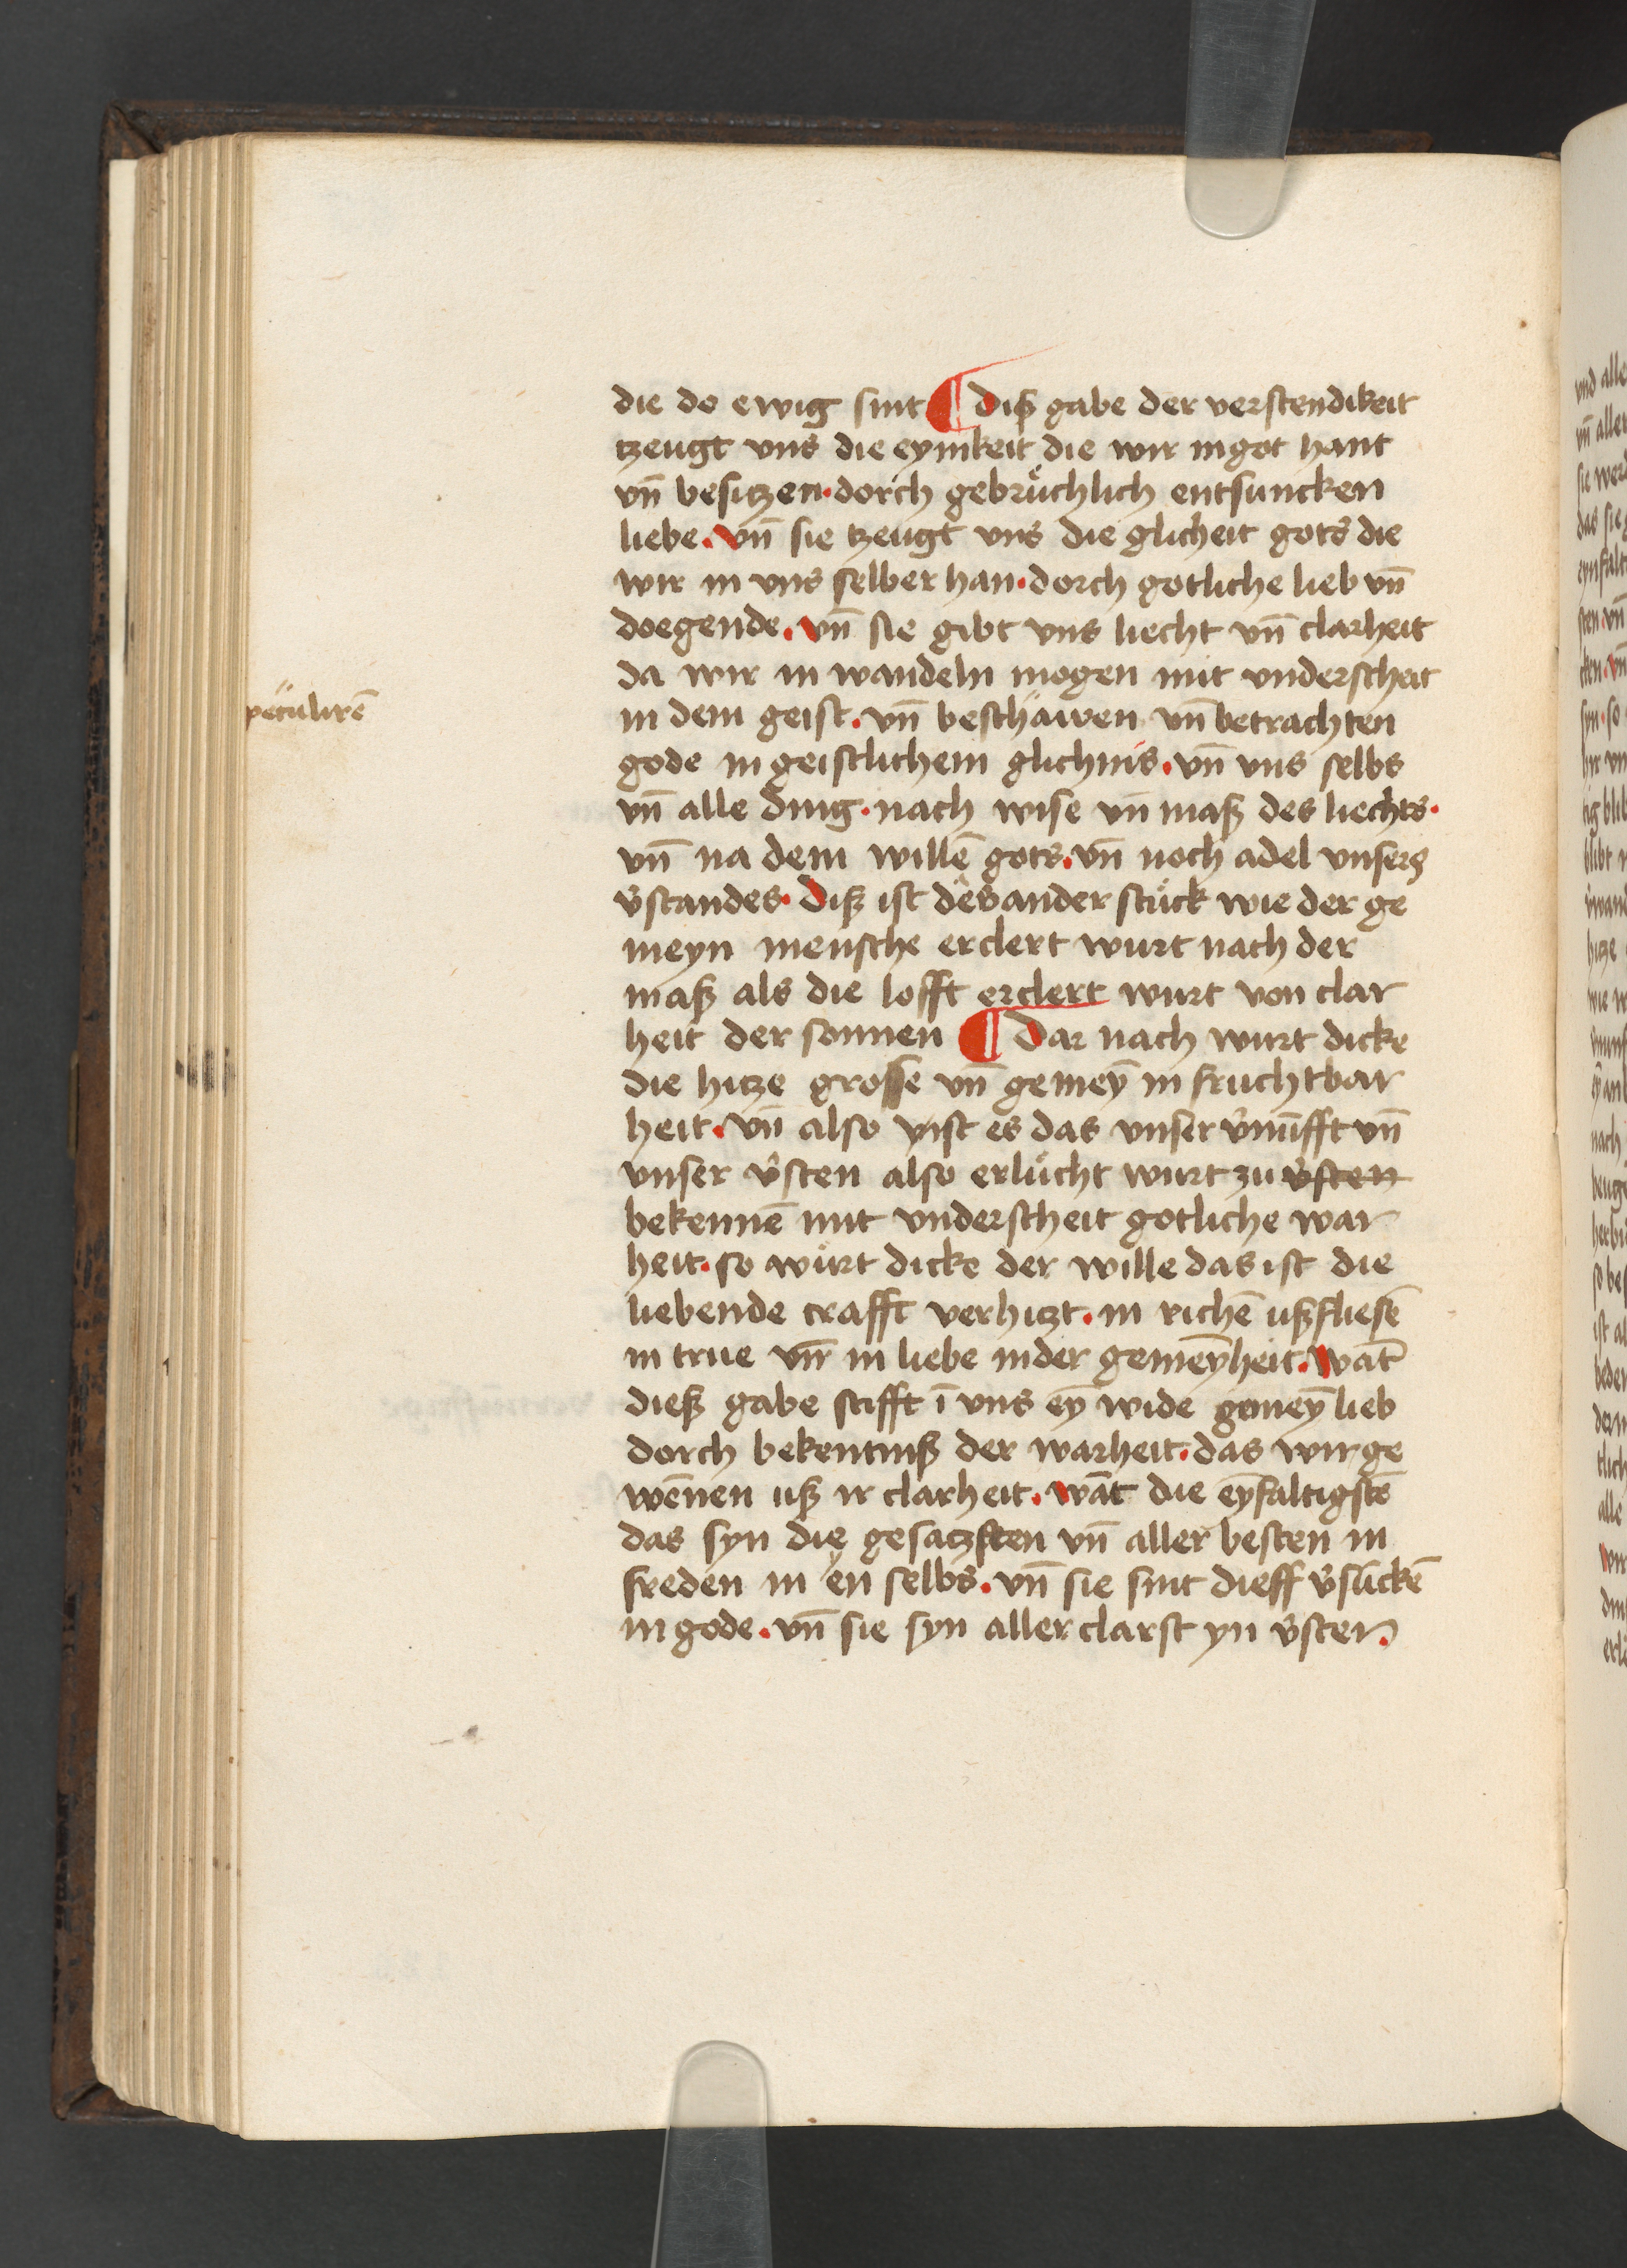 die do ewig sint ¶ Diß gabe der verstendikeit
tzeugt vns die eynikeit die wir in got hant
vn̄ besitzen · dorch gebrüchlich entsuncken
liebe . vn̄ sie tzeugt vns die glicheit gots die
wir in vns selber han · dorch gotliche lieb vn̄
doegende . vn̄ sie gibt vns liecht vn̄ clarheit
da wir in wandeln mogen mit vnderscheit
peculirē
in dem geist . vn̄ beschäwen vn̄ betrachten
gode in geistlichem glichnis . vn̄ vns selbs
vn̄ alle ding · nach wise vn̄ maß des liechts ·
vn̄ na dem willē gots . vn̄ noch adel vnsers
v̓standes · Diß ist des ander stück wie der ge
meyn mensche erclert wurt nach der
maß als die lofft erclert wurt von clar
heit der sonnen ¶ Dar nach wurt dicke
die hitze grosse vn̄ gemeȳ in fruchtbar
heit . vn̄ also yist es das vnser v̓nūfft vn̄
vnser v̓sten also erlücht wurt zu v̓sten
bekennē mit vnderscheit gotliche war
heit · so würt dicke der wille das ist die
liebende crafft verhitzt . in richē ußfliesē
in true vn̄ in liebe in der gemeȳheit . Wāt
dieß gabe stifft ī vns eȳ wide gemeȳ lieb
dorch bekentniß der warheit . das wir ge
wēnen uß ir clarheit . wāt die eȳfaltigstē
das syn die gesatzsten vn̄ aller besten in
freden in en selbs . vn̄ sie sint dieff v̓suckē
in gode . vn̄ sie syn aller clarst yn v̓sten .